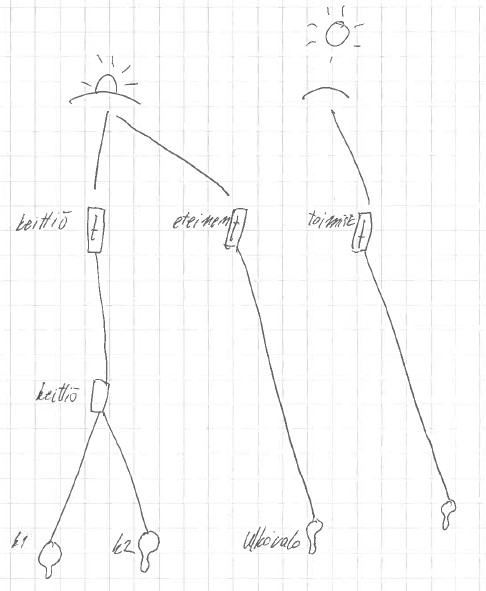 keittiö
t
eteinen
t
toimist
t
keittiö
k1
k2
Ulkovalo